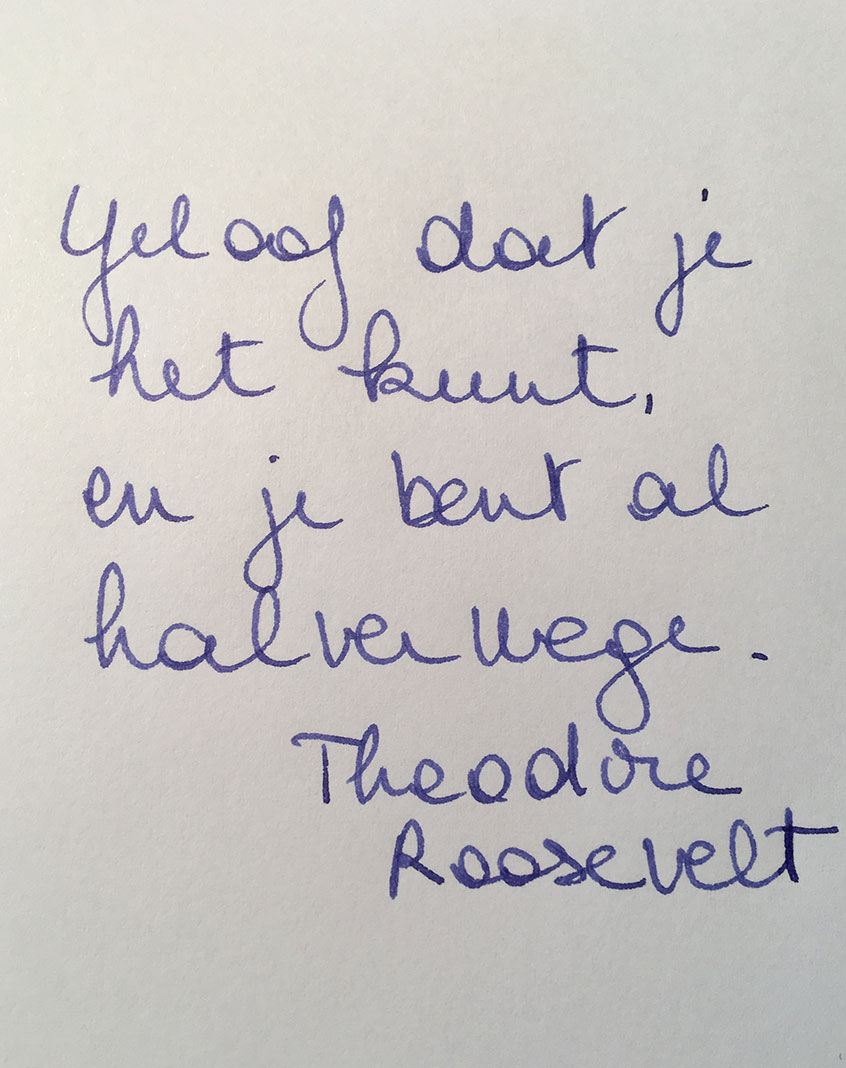 Geloof dat je
het kunt,
en je bent al
halverwege.
Theodore
Roosevelt